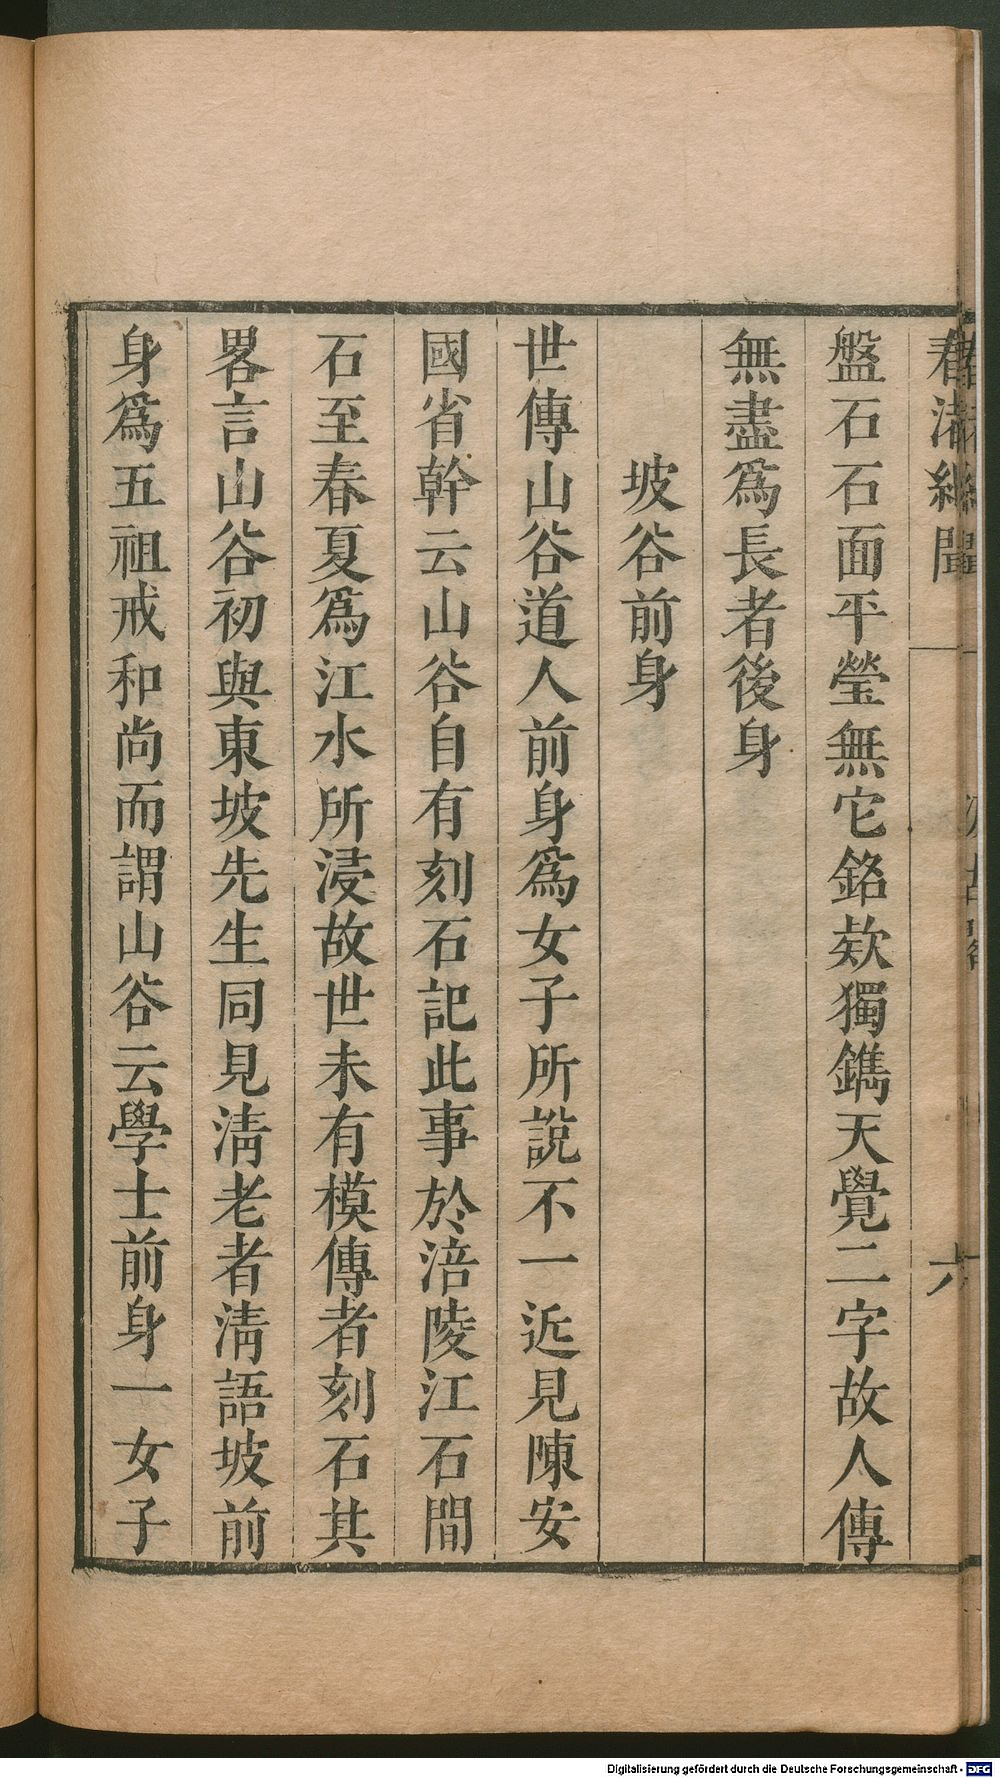 春渚紀聞
六
盤石石面平瑩無它銘欵獨鐫天覺二字故人傳
無盡爲長者後身
坡谷前身
世傳山谷道人前身爲女子所說不一近見陳安
國省幹云山谷自有刻石記此事於涪陵江石間
石至春夏爲江水所浸故世未有模傳者刻石其
畧言山谷初與東坡先生同見淸老者淸語坡前
身爲五祖戒和尚而謂山谷云學士前身一女子
Digitalisierung gefördert durch die Deutsche Forschungsgemeinschaft - DFG